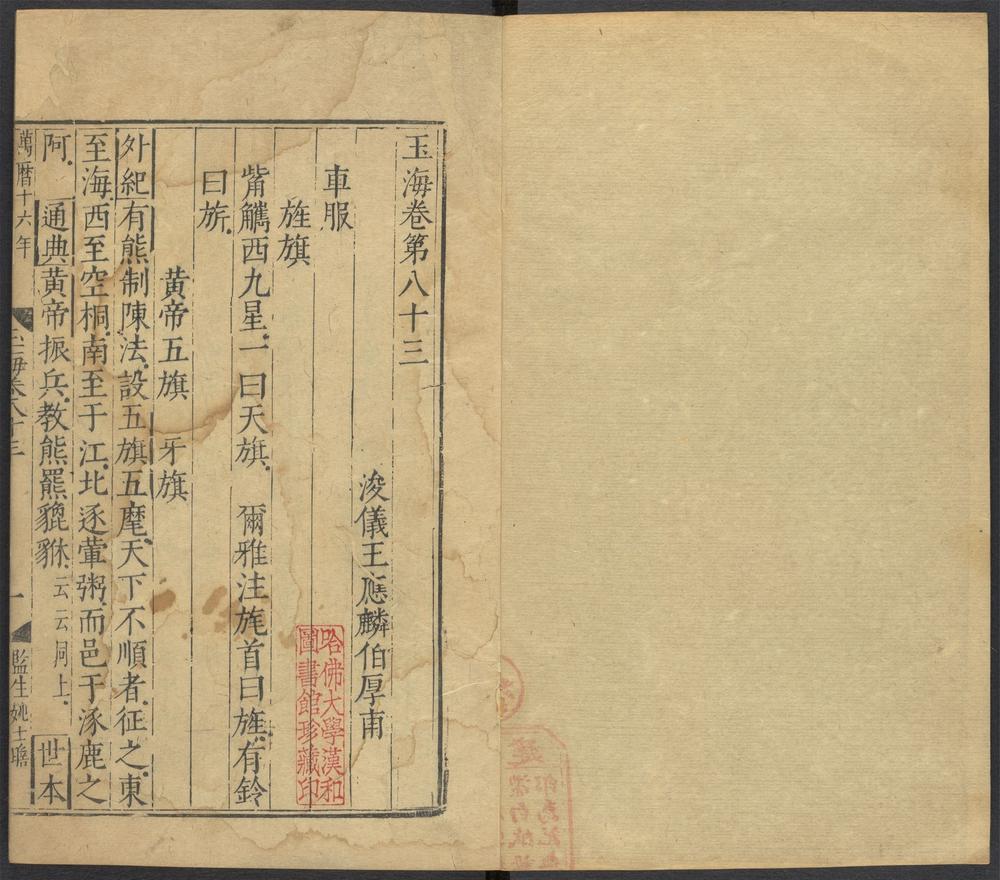 玉海卷第八十三
浚儀王應麟伯厚甫
車服
旌旗
觜觿西九星一曰天旗 爾雅注旄首曰旌有鈴
曰旂
黃帝五旗 牙旗
外紀有熊制陳法設五旗五麾天下不順者征之東
至海西至空桐南至于江北逐葷粥而邑于涿鹿之
阿 通典黃帝振兵教熊羆貔貅云云同上 世本
萬曆十六年
玉海卷八十三
一
監生姚士瞻
哈佛大學漢和
圖書館珍藏印